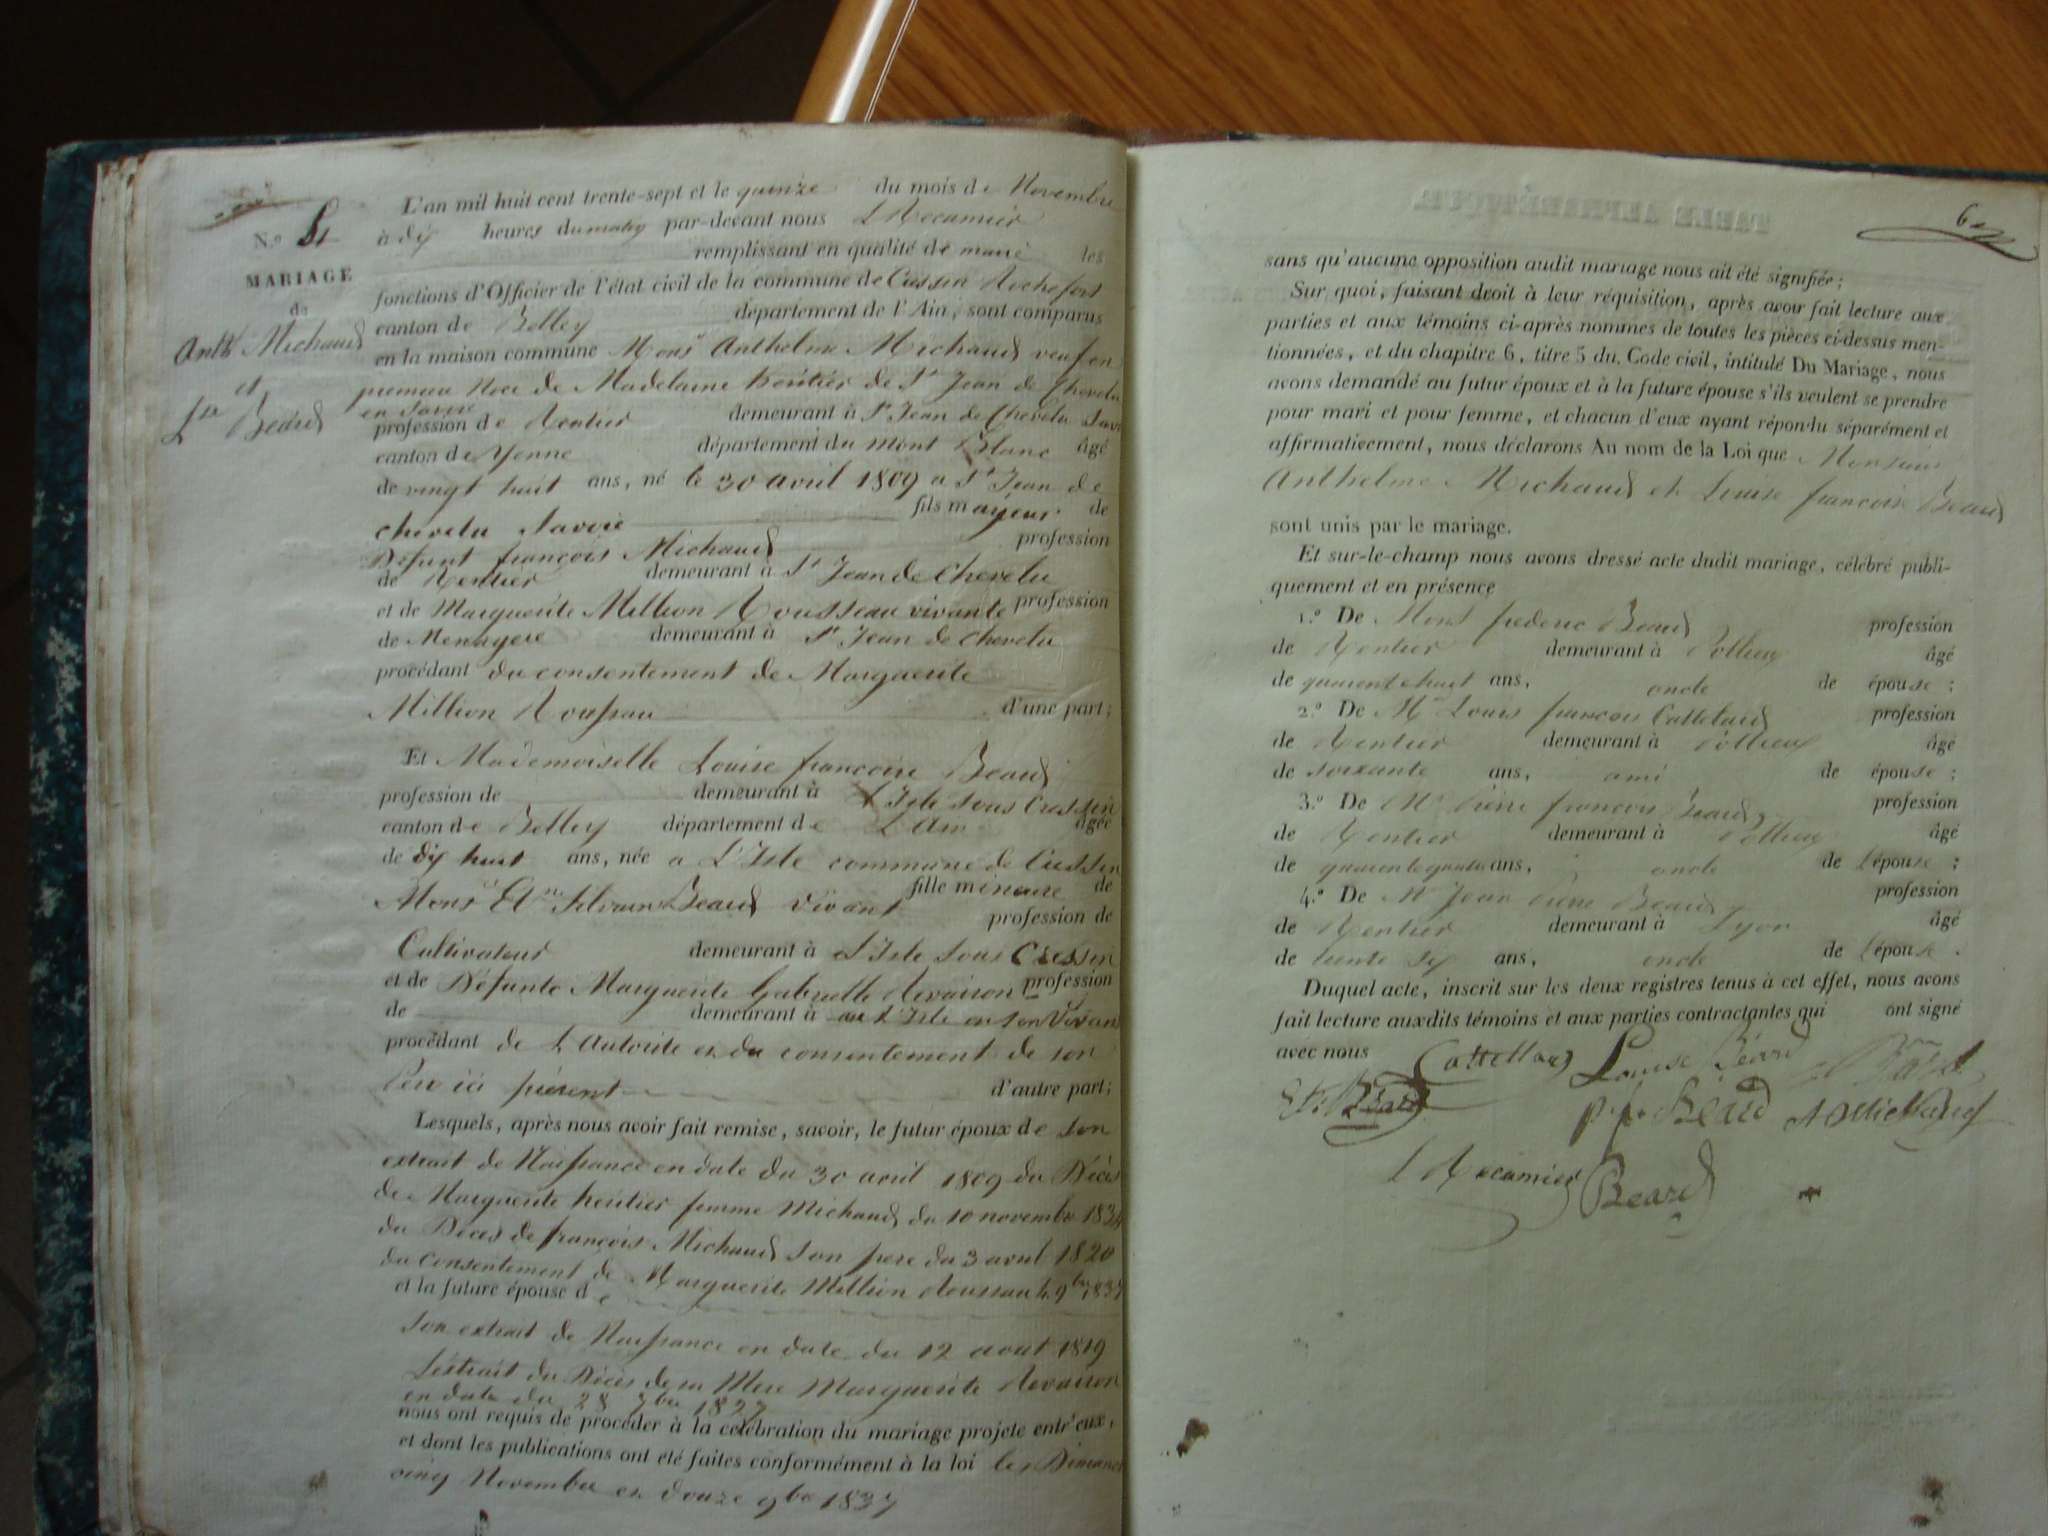 L'an mil huit cent trente-sept et le quinze du mois de Novembre
à dix heures du matin par-devant nous L Recamier
remplissant en qualité de maire les
fonctions d'Officier de l'état civil de la commune de Cressin Rochefort
canton de Belley département de l'Ain, sont comparus
en la maison commune Monsr Anthelme Michaud veuf en
premiere Noce de Madelaine heritier de St Jean de Chevelu
en Savoie
profession de Rentier demeurant à St Jean de Chevelu Savoie
canton de Yenne département du mont Blanc âgé
de vingt huit ans, né le 30 avril 1809 a St Jean de
chevelu Savoie fils mayeur de
Défunt françois Michaud profession
de Rentier demeurant à St Jean de Chevelu
et de Marguerite Million Rousseau vivante profession
de Menagere demeurant à St Jean de Chevelu
procédant du consentement de Marguerite
Million Roussau d'une part;
Et Mademoiselle Louise françoise Beard
profession de demeurant à L'Isle sous Cressin
canton de Belley département de L'Ain âgée
de dix huit ans, née a L'Isle commune de Cressin
fille mineure de
Monsr Etne Silvain Beard vivant profession de
Cultivateur demeurant à L'Isle sous Cressin
et de Défunte Marguerite Gabrielle Revairon profession
de demeurant à L'Isle en son Vivant
procédant de L'Autorité et du consentement de son
Pere ici présent d'autre part;
Lesquels, après nous avoir fait remise, savoir, le futur époux de son
extrait de Naissance en date du 30 avril 1809 du Décès
de Marguerite heritier femme Michaud du 10 novembre 1834
du Décès de françois Michaud son pere du 3 avril 1820
du consentement de Marguerite Million Roussau 9bre 1837
et la future épouse de
son extrait de Naissance en date du 12 aout 1819
L'extrait du Décès de sa Mere Marguerite Revairon
en date du 28 7bre 1827
nous ont requis de procéder à la célébration du mariage projeté entr'eux,
et dont les publications ont été faites conformément à la loi les Dimanches
cinq Novembre et douze 9bre 1837
N.o
MARIAGE
de
Anthe Michaud
et
Lse Beard
6
sans qu'aucune opposition audit mariage nous ait été signifiée;
Sur quoi, faisant droit à leur réquisition, après avoir fait lecture aux
parties et aux témoins ci-après nommes de toutes les pièces ci-dessus men-
tionnées, et du chapitre 6, titre 5 du Code civil, intitulé Du Mariage, nous
avons demandé au futur époux et à la future épouse s'ils veulent se prendre
pour mari et pour femme, et chacun d'eux ayant répondu séparément et
affirmativement, nous déclarons Au nom de la Loi que Monsieur
Anthelme Michaud et Louise françoise Beard
sont unis par le mariage.
Et sur-le-champ nous avons dressé acte dudit mariage, célébré publi-
quement et en présence
1.o De Monsr frederic Beard profession
de Rentier demeurant à Pollieu âgé
de quarente huit ans, oncle de épouse;
2.o De Mr Louis françois Cattelard profession
de Rentier demeurant à Pollieu âgé
de soixante ans, ami de épouse;
3.o De Mr Pierre françois Beard profession
de Rentier demeurant à Pollieu âgé
de quarente quatre ans, oncle de l'épouse;
4.o De Mr Jean Pierre Beard profession
de Rentier demeurant à Lyon âgé
de trente six ans, oncle de l'épouse.
Duquel acte, inscrit sur les deux registres tenus à cet effet, nous avons
fait lecture auxdits témoins et aux parties contractantes qui ont signé
avec nous Cattellard Louise Béard
Béard Béard A Michaud
L Recamier Beard